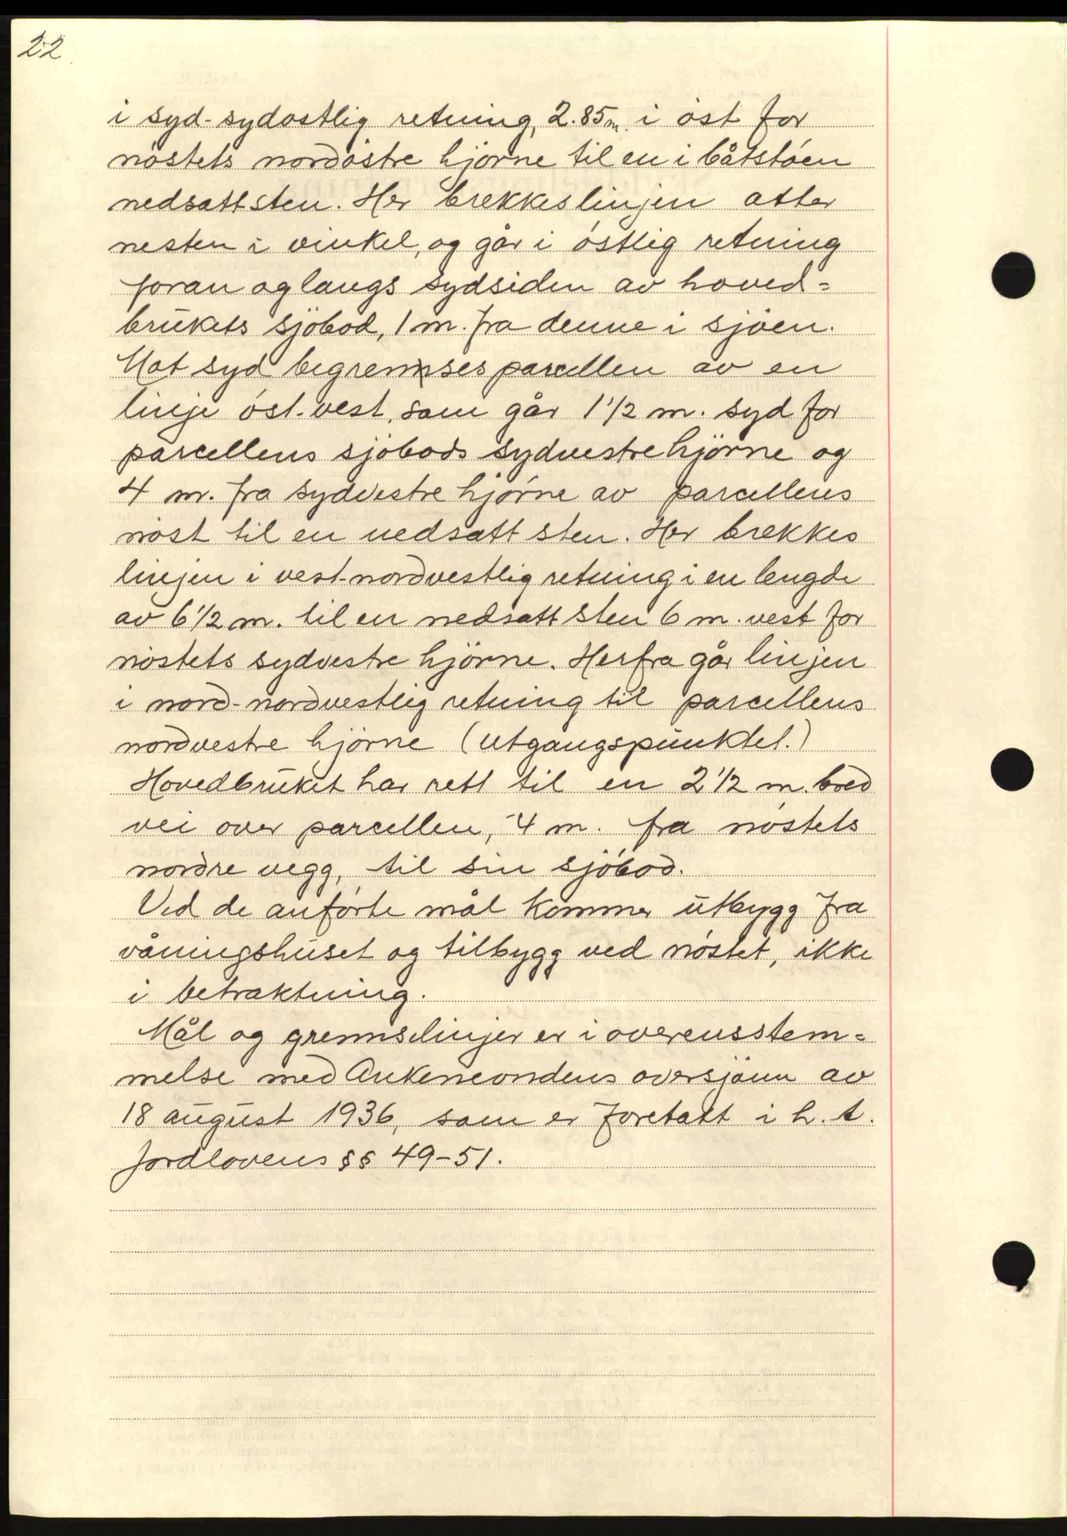 22
i syd-sydøstlig retning, 2.85 m. i øst for
nøstets nordøstre hjørne til en i båtstøen
nedsatt sten. Her brekkes linjen atter
nesten i vinkel, og går i østlig retning
foran og langs sydsiden av hoved=
brukets sjøbod, 1 m. fra denne i sjøen.
Mot syd begrenses parcellen av en
linje øst-vest, som går 1 1/2 m. syd for
parcellens sjøbods sydvestre hjørne og
4 m. fra sydvestre hjørne av parcellens
nøst til en nedsatt sten. Her brekkes
linjen i vest-nordvestlig retning i en lengde
av 6 1/2 m. til en nedsatt sten 6 m. vest for
nøstets sydvestre hjørne. Herfra går linjen
i nord-nordvestlig retning til parcellens
nordvestre hjørne (utgangspunktet.)
Hovedbruket har rett til en 2 1/2 m. bred
vei over parcellen, 4 m. fra nøstets
nordre vegg, til sin sjøbod.
Ved de anførte mål kommer utbygg fra
våningshuset og tilbygg ved nøstet, ikke
i betraktning.
Mål og grenselinjer er i overensstem=
melse med Ankenevndens overskjønn av
18 august 1936, som er foretatt i h. t.
Jordlovens §§ 49-51.